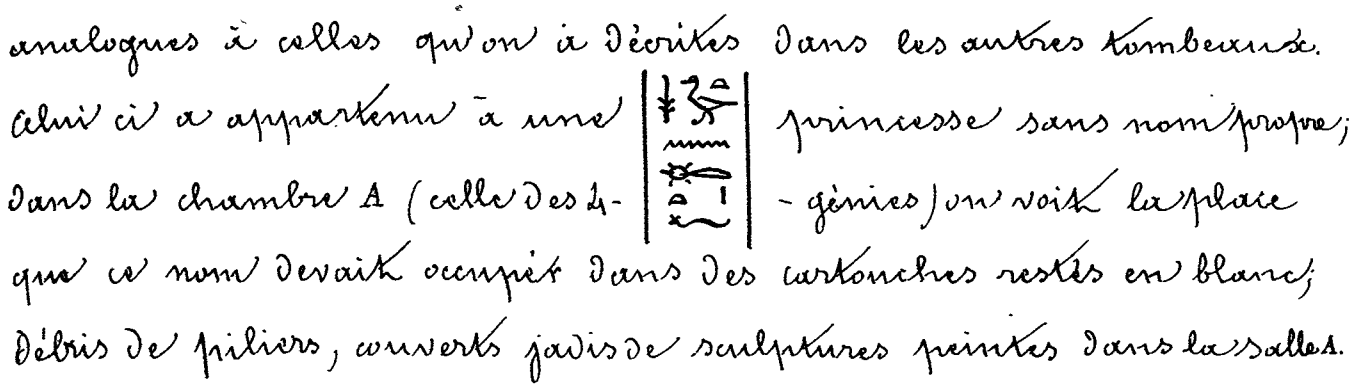 analogues à celles qu'on a décrites dans les autres tombeaux.
Celui ci a appartenu à une princesse sans nom propre;
dans la chambre A (celle des 4 - - génies) on voit la place
que ce nom devait occuper dans des cartouches restés en blanc;
Débris de piliers, couverts jadis de sculptures peintes dans la salle A.